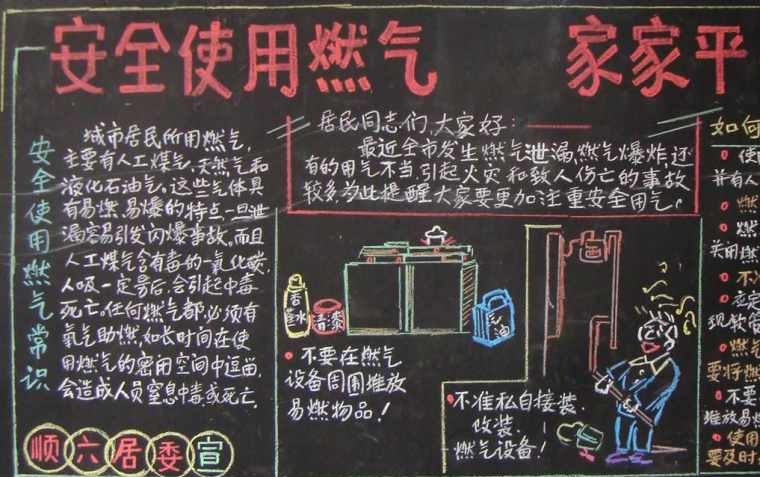 安全使用燃气 家家平
安全使用燃气常识
城市居民所用燃气,
主要有人工煤气,天然气和
液化石油气。这些气体具
有易燃,易爆的特点,一旦泄
漏容易引发闪爆事故,而且
人工煤气含有毒的一氧化碳,
人吸一定量后,会引起中毒
死亡,任何燃气都必须有
氧气助燃,如长时间在使
用燃气的密闭空间中逗留,
会造成人员窒息中毒或死亡.
顺六居委宣
居民同志们,大家好:
最近全市发生燃气泄漏,燃气爆炸,还
有的用气不当,引起火灾和致人伤亡的事故
较多,为此提醒大家要更加注重安全用气。
香蕉水
青漆
汽油
不要在燃气
设备周围堆放
易燃物品!
不准私自接装.
改装.
燃气设备!
如何
使
并有人
燃
燃
关用燃
不
定
现软管
燃气
要将燃
不要
堆放易燃
使用
要及时